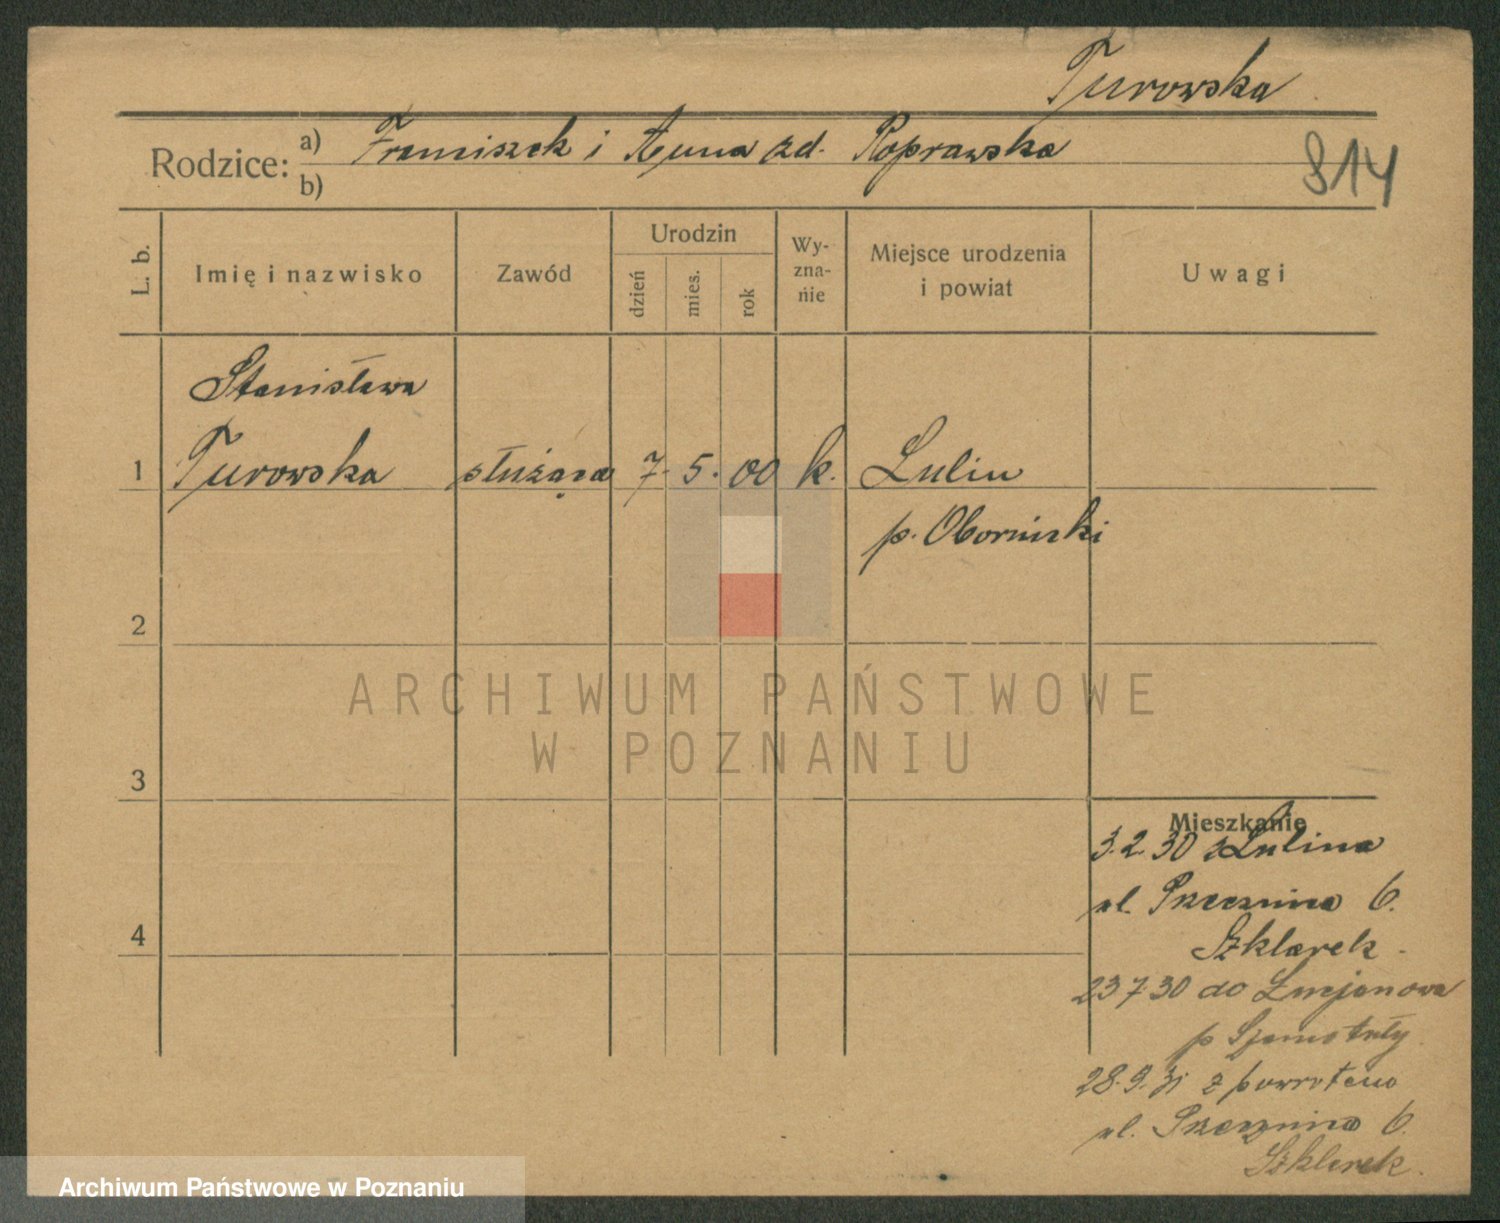 Turowska
Rodzice: a) Franciszek i Anna zd. Poprawska
b)
814
L. b.
Imię i nazwisko
Zawód
Urodzin
dzień
mies.
rok
Wy-
zna-
nie
Miejsce urodzenia
i powiat
Uwagi
Stanisława
1 Turowska służąca 7. 5. 00 k. Lulin
p. Obornicki
2
3
4
ARCHIWUM PAŃSTWOWE
W POZNANIU
Mieszkanie
3.2.30 z Lulina
ul. Przecznica 6.
Szklarek
23 7 30 do Lucjanowa
p Szamotuły
28.9.31 z powrotem
ul. Przecznica 6.
Szklarek.
Archiwum Państwowe w Poznaniu